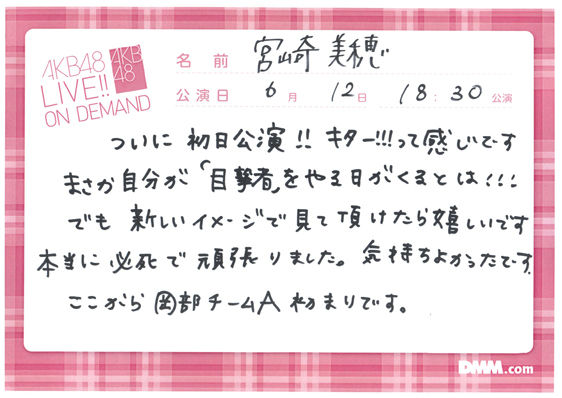 AKB48
LIVE!!
ON DEMAND
AKB
48
名前 宮崎美穂
公演日 6月 12日 18:30公演
ついに 初日公演!! キター!!!って感じです
まさか自分が「目撃者」をやる日がくるとは!!!
でも 新しいイメージで見て頂けたら嬉しいです
本当に必死で頑張りました。気持ちよかったです。
ここから岡部チームA初まりです。
DMM.com